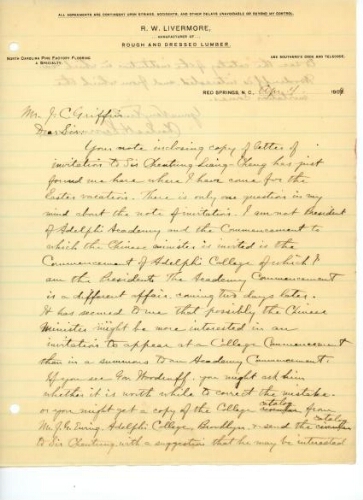 ALL AGREEMENTS ARE CONTINGENT UPON STRIKES, ACCIDENTS, AND OTHER DELAYS UNAVOIDABLE OR BEYOND MY CONTROL.
R. W. LIVERMORE,
MANUFACTURER OF
ROUGH AND DRESSED LUMBER.
NORTH CAROLINA PINE FACTORY FLOORING
A SPECIALTY.
RED SPRINGS, N. C., 190
Mr. J. C. Griffin
Dear Sir:
Your note inclosing copy of letter of
invitation to Sir Chentung Liang-Cheng has just
found me here where I have come for the
Easter vacation. There is only one question in my
mind about the note of invitation. I am not President
of Adelphi Academy and the Commencement to
which the Chinese minister is invited is the
Commencement of Adelphi College of which I
am the President. The Academy Commencement
is a different affair coming two days later.
It has seemed to me that possibly the Chinese
Minister might be more interested in an
invitation to appear at a College Commencement
than in a summons to an Academy Commencement.
If you see Ion Woodruff, you might ask him
whether it is worth while to correct the mistake.
or you might get a copy of the College catalog from
Mr. J. C. Ewing, Adelphi College, Brooklyn & send the catalog
to Sir Chentung with a suggestion that he may be interested